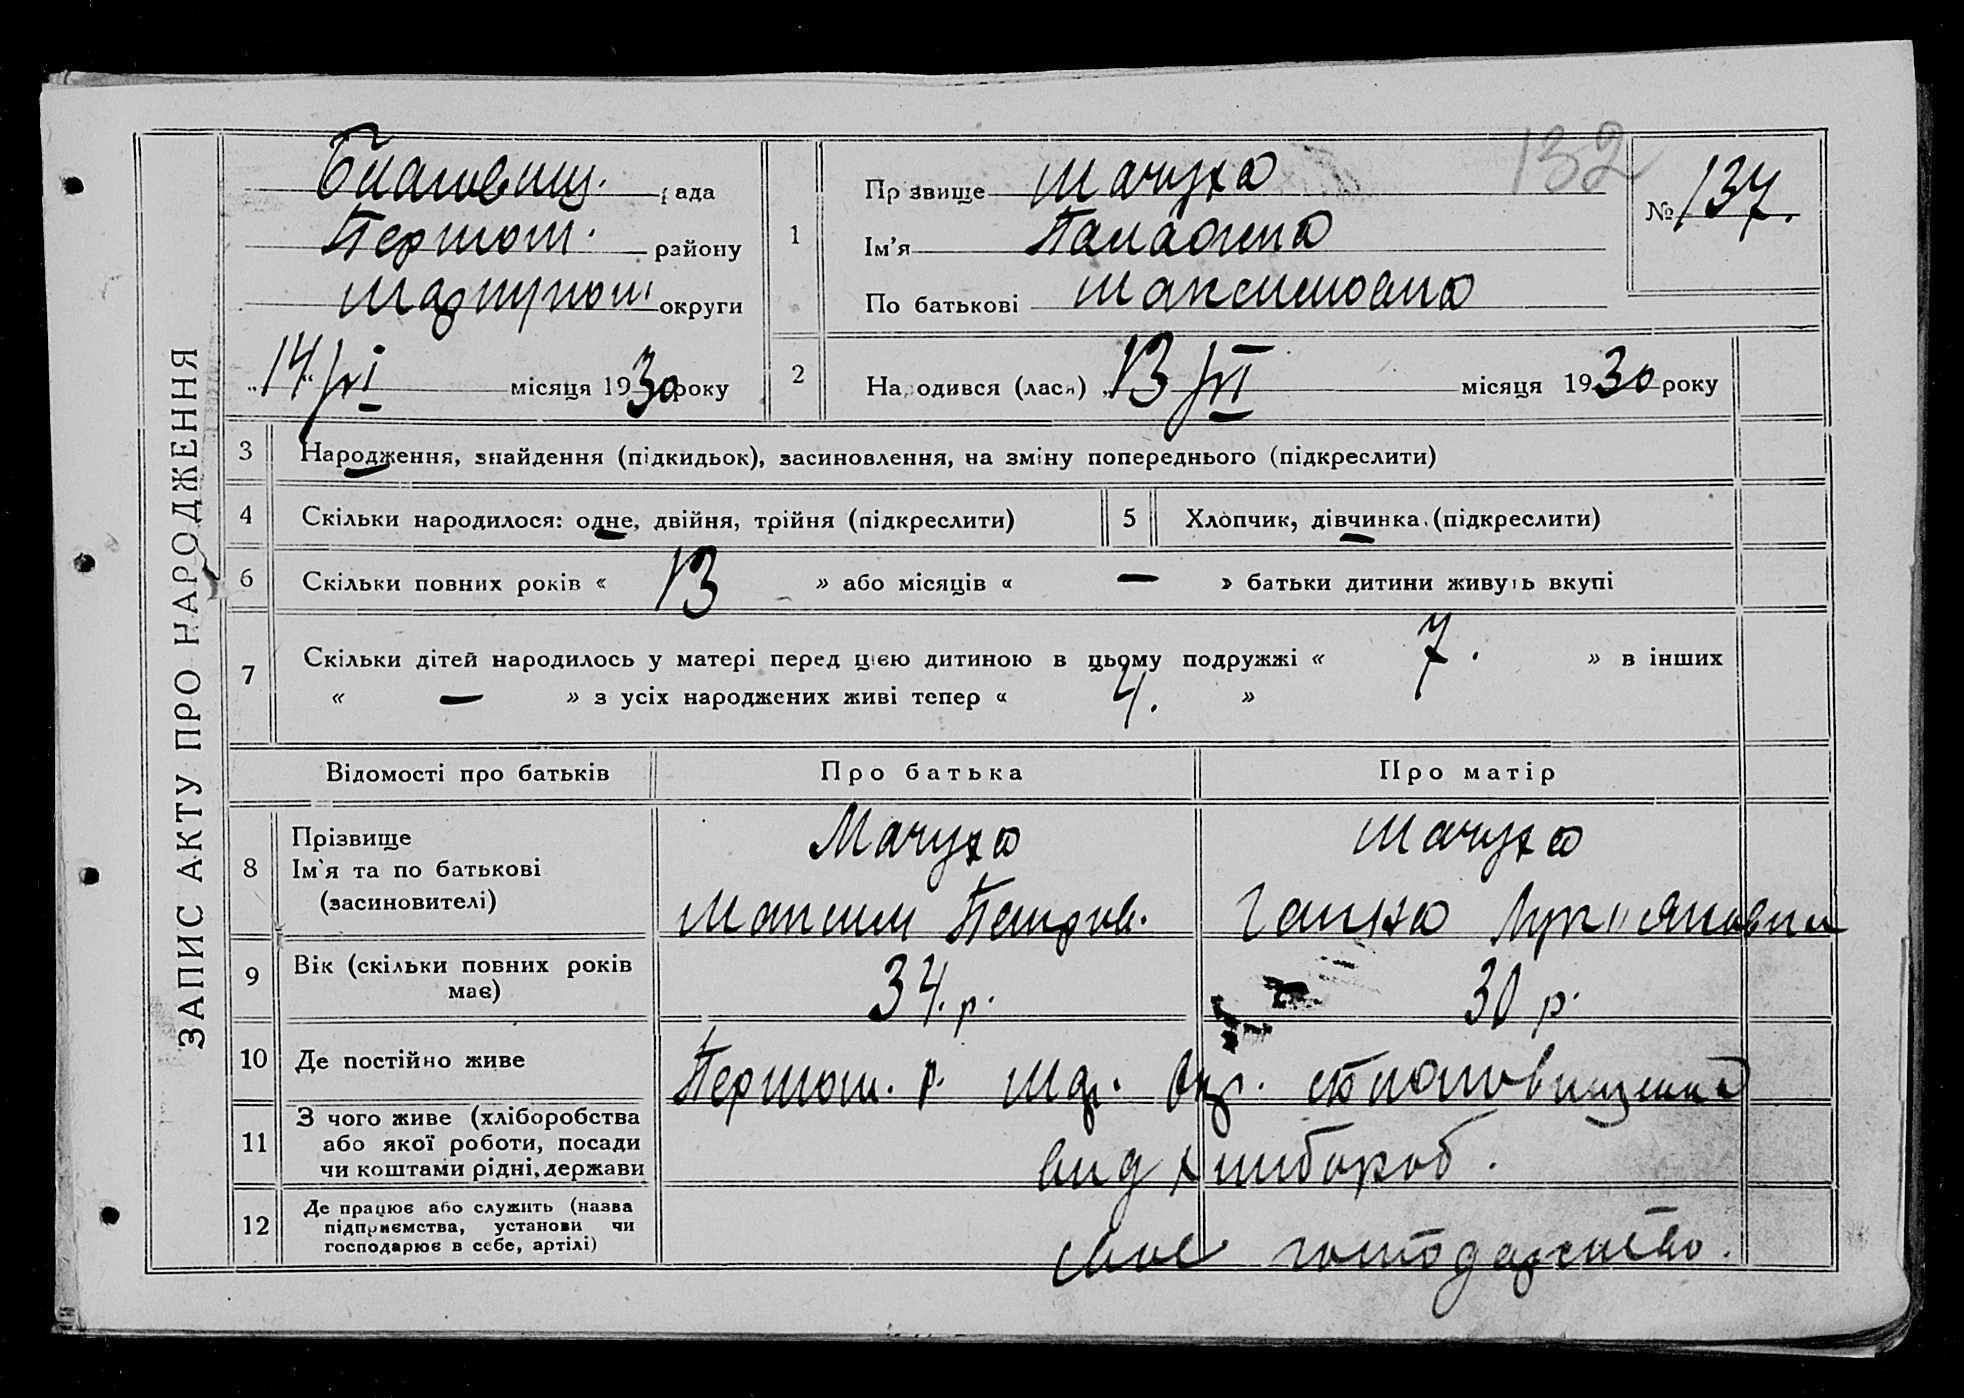 ЗАПИС АКТУ ПРО НАРОДЖЕННЯ
132
№ 137.
рада
Першот. району
Маріупол. округи
„14“ VI місяця 1930 року
1
Прізвище Мачуха
Ім’я
По батькові Максимовна
2
Народився (лася) „13 VI місяця 1930 року
3 Народження, знайдення (підкидьок), засиновлення, на зміну попереднього (підкреслити)
4 Скільки народилося: одне, двійня, трійня (підкреслити)
5 Хлопчик, дівчинка (підкреслити)
6 Скільки повних років « 13 » або місяців « — » батьки дитини живуть вкупі
7 Скільки дітей народилось у матері перед цією дитиною в цьому подружжі « 7. » в інших
« — » з усіх народжених живі тепер « 4. »
Відомості про батьків Про батька Про матір
8 Прізвище
Ім`я та по батькові
(засиновителі)
Мачуха
Максим
Мачуха
Ганна Лук"яновна
9 Вік (скільки повних років
має)
34. р.
30 р.
10 Де постійно живе
Першот. р. Мар. Окр.
11 З чого живе (хліборобства
або якої роботи, посади
чи коштами рідні, держави
від хлібороб.
12 Де працює або служить (назва
підприємства, установи чи
господарює в себе, артілі)
своє господарство.